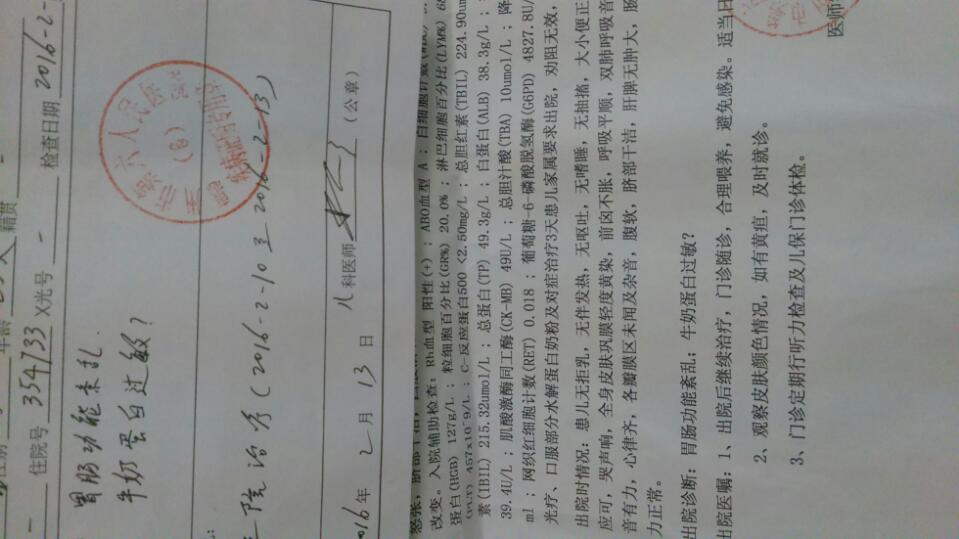 籍贯
住院号 354733 X光号 - 检查日期 2016-2-
胃肠功能紊乱
牛奶蛋白过敏?
院治疗(2016-2-10至2016-2-13)
儿科医师
(公章)
016年 2月 13日
改变。入院辅助检查: Rh血型 阳性(+) ; ABO血型 A ; 白细胞计数
蛋白(HGB) 127g/L ; 粒细胞百分比(GR%) 20.0% ; 淋巴细胞百分比(LYM%) 68
(PLT) 457x10^9/L ; C-反应蛋白500 <2.50mg/L ; 总胆红素(TBIL) 224.90um
素(IBIL) 215.32umol/L ; 总蛋白(TP) 49.3g/L ; 白蛋白(ALB) 38.3g/L ;
39.4U/L ; 肌酸激酶同工酶(CK-MB) 49U/L ; 总胆汁酸(TBA) 10umol/L ; 降
ml ; 网织红细胞计数(RET) 0.018 ; 葡萄糖-6-磷酸脱氢酶(G6PD) 4827.8U/
光疗、口服部分水解蛋白奶粉及对症治疗3天患儿家属要求出院,劝阻无效,
出院时情况: 患儿无拒乳,无伴发热,无呕吐,无嗜睡,无抽搐,大小便正
应可,哭声响,全身皮肤巩膜轻度黄染,前囟不胀,呼吸平顺,双肺呼吸音
音有力,心律齐,各瓣膜区未闻及杂音,腹软,脐部干洁,肝脾无肿大,肠
力正常。
出院诊断: 胃肠功能紊乱; 牛奶蛋白过敏?
出院医嘱: 1、出院后继续治疗,门诊随诊,合理喂养,避免感染。适当日
2、观察皮肤颜色情况,如有黄疸,及时就诊。
3、门诊定期行听力检查及儿保门诊体检。
医师